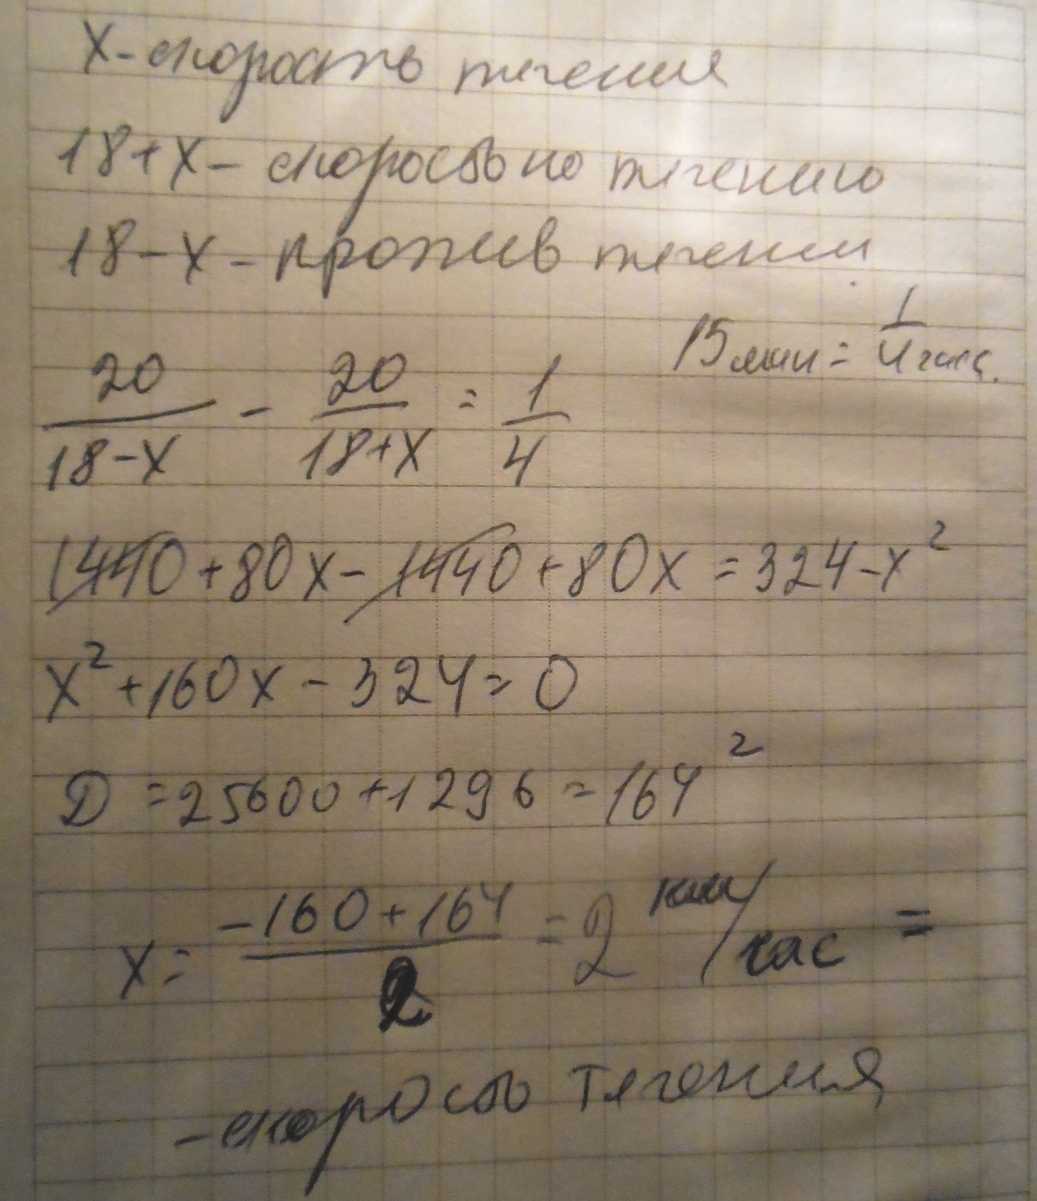 х - скорость течения
18+х - скорость по течению
18-х - против течении
15 мин = 1/4 час.
20/(18-х) - 20/(18+х) = 1/4
1440+80х-1440+80х=324-х²
х²+160х-324=0
Д=25600+1296=164²
х= (-160+164)/2 = 2 км/час =
- скорость течения